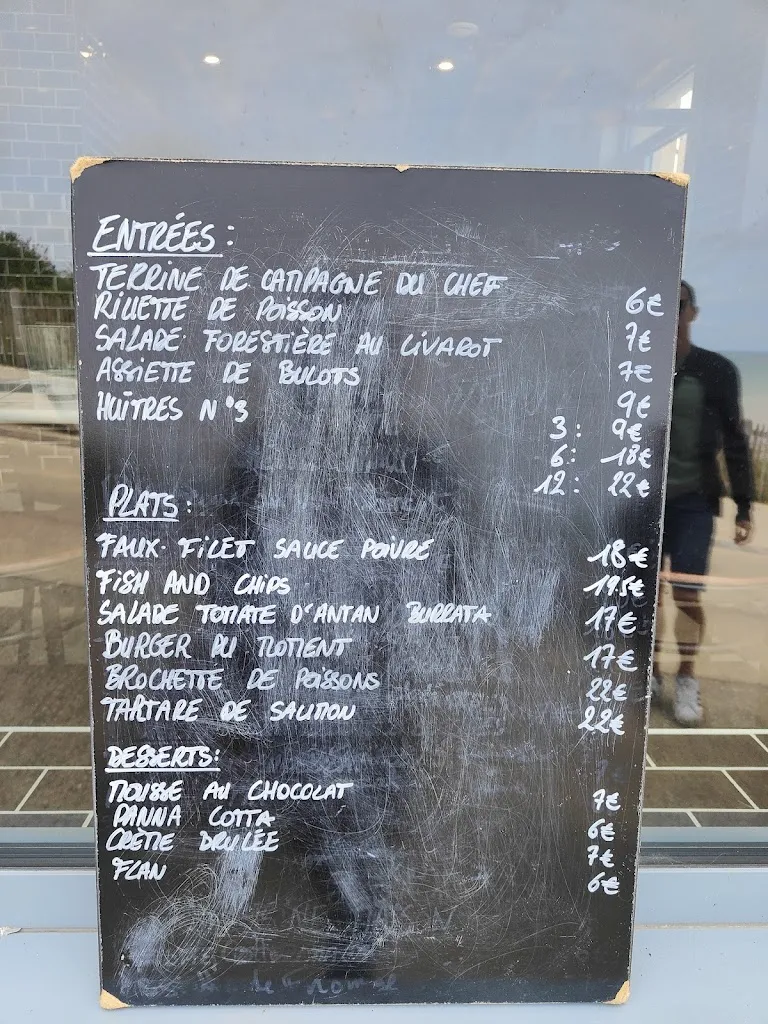 ENTRÉES :
TERRINE DE CAMPAGNE DU CHEF 6€
RILLETTE DE POISSON 7€
SALADE FORESTIÈRE AU LIVAROT 7€
ASSIETTE DE BULOTS 9€
HUÎTRES N°3 3: 9€
6: 18€
12: 22€
PLATS :
FAUX-FILET SAUCE POIVRE 18€
FISH AND CHIPS 19.5€
SALADE TOMATE D'ANTAN BURRATA 17€
BURGER DU MOMENT 17€
BROCHETTE DE POISSONS 22€
TARTARE DE SAUMON 22€
DESSERTS :
MOUSSE AU CHOCOLAT 7€
PANNA COTTA 6€
CRÈME BRULÉE 7€
FLAN 6€